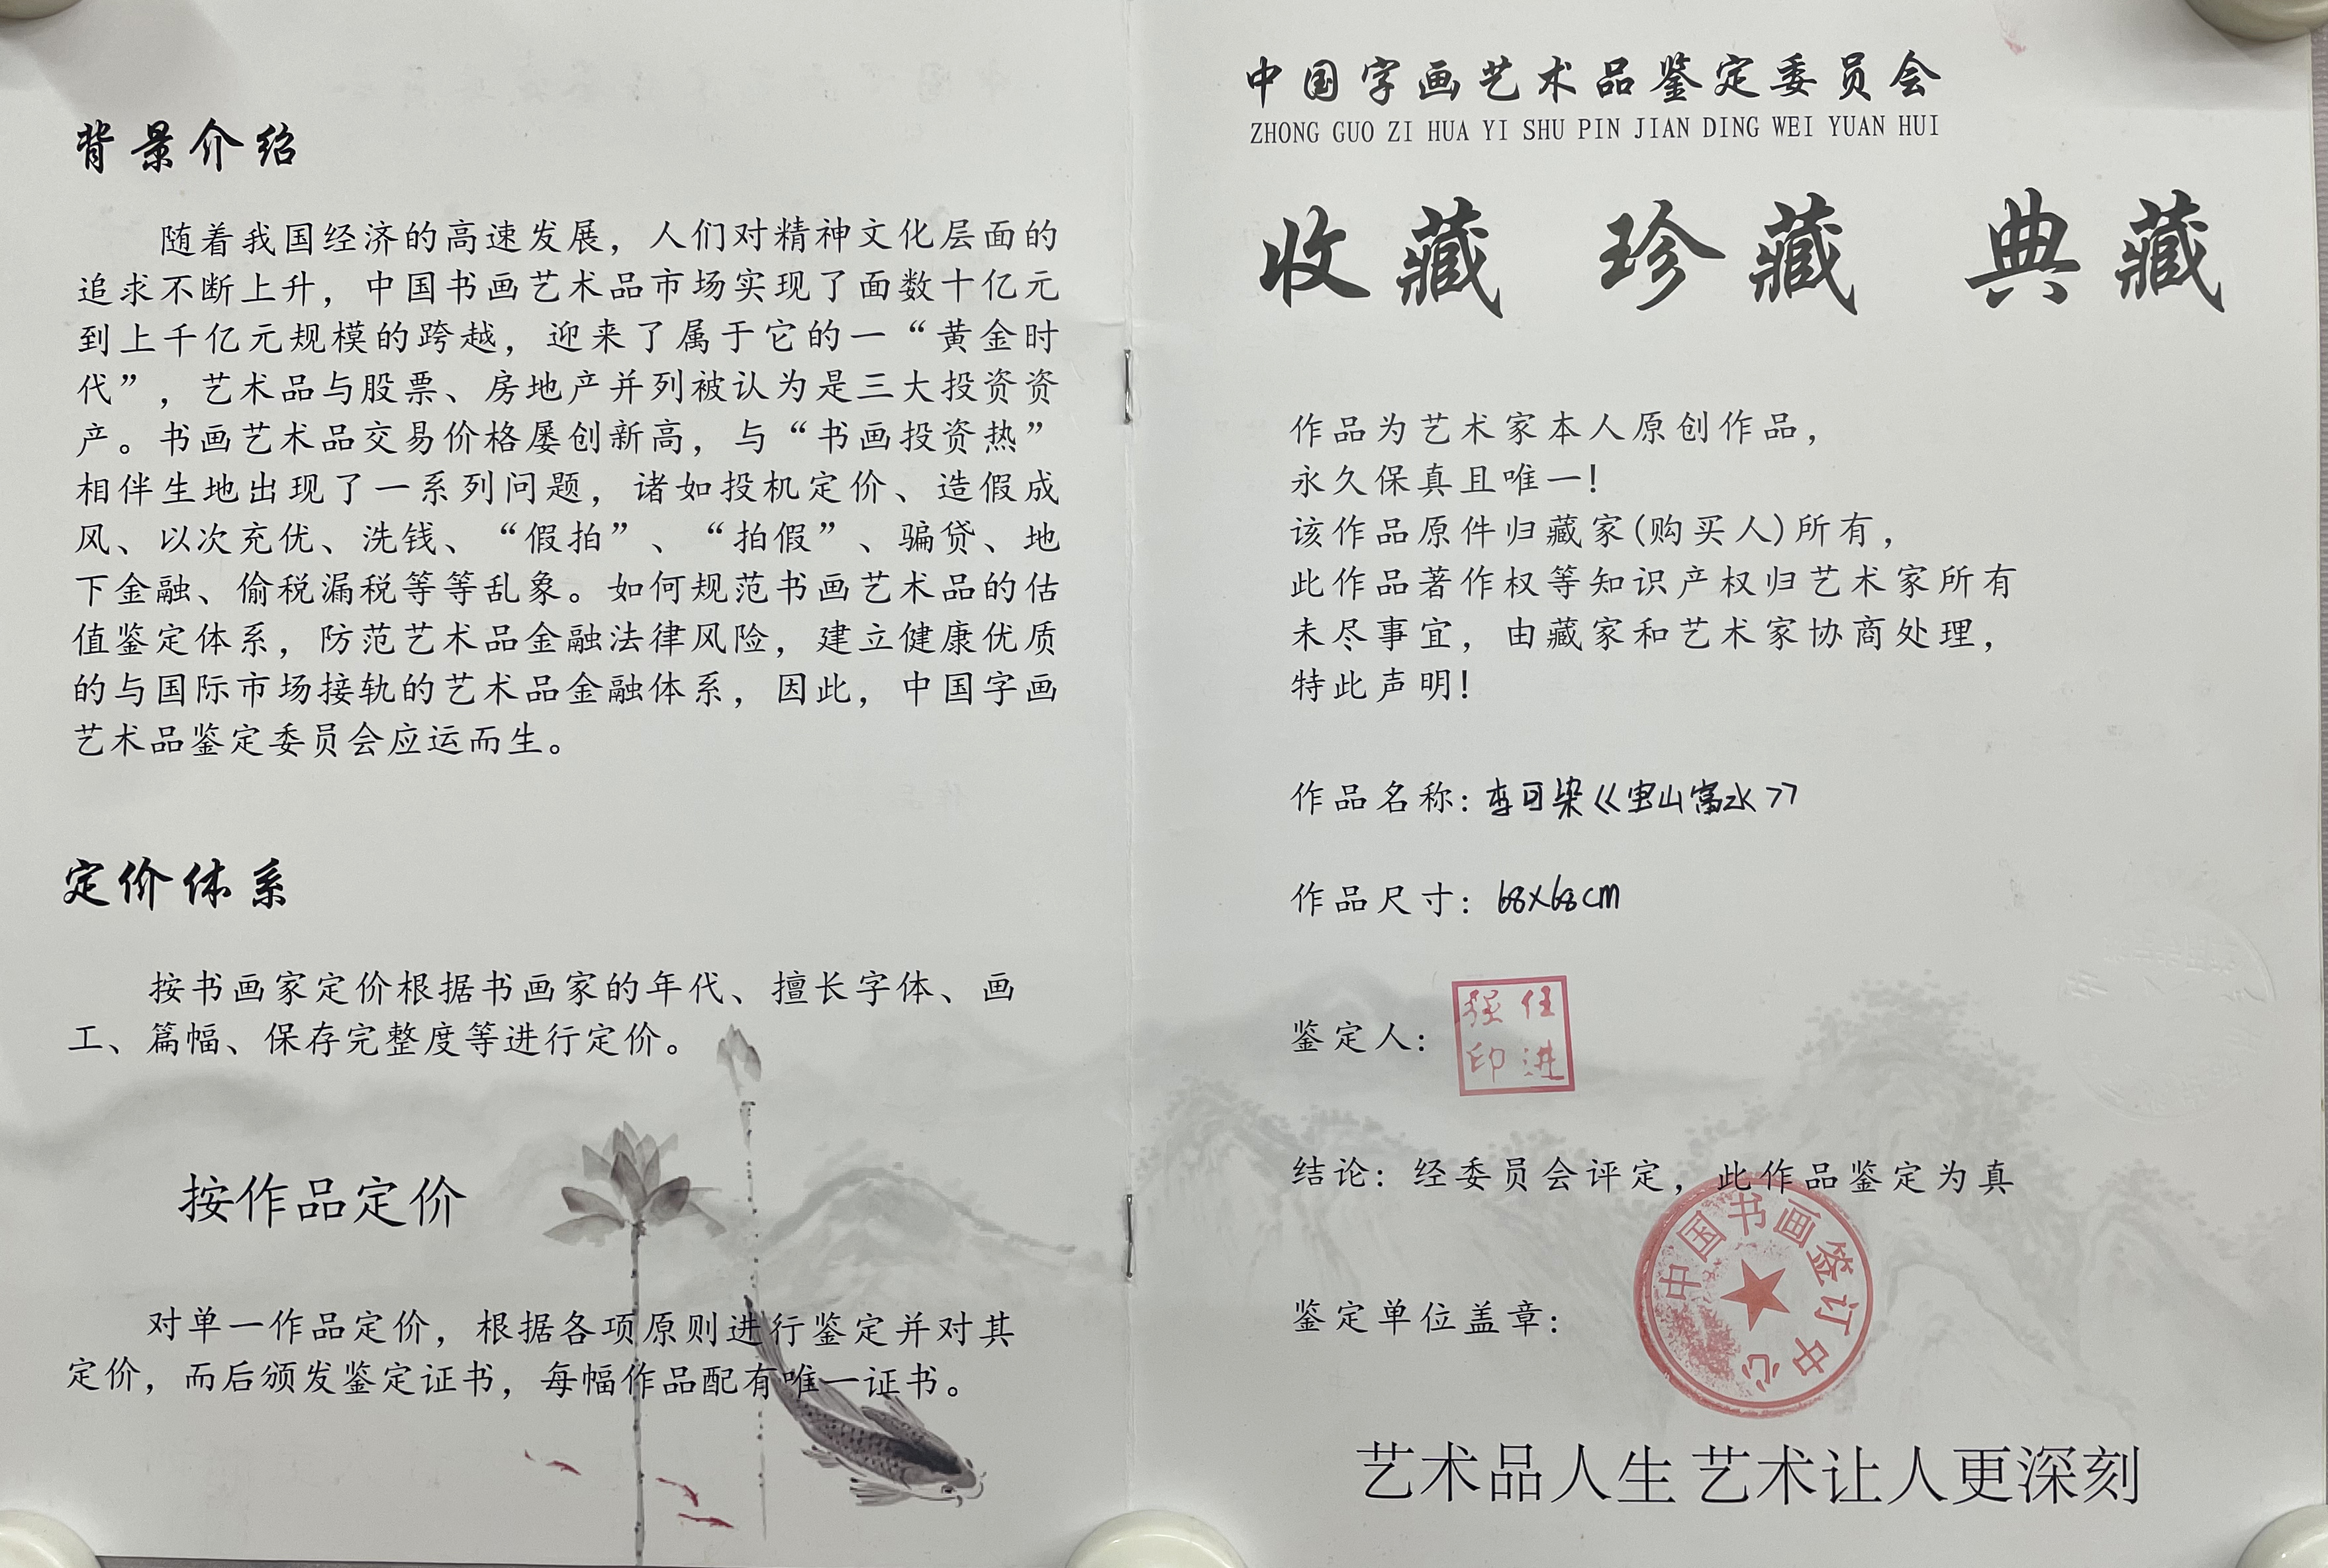 背景介绍
随着我国经济的高速发展，人们对精神文化层面的
追求不断上升，中国书画艺术品市场实现了面数十亿元
到上千亿元规模的跨越，迎来了属于它的一“黄金时
代”，艺术品与股票、房地产并列被认为是三大投资资
产。书画艺术品交易价格屡创新高，与“书画投资热”
相伴生地出现了一系列问题，诸如投机定价、造假成
风、以次充优、洗钱、“假拍”、“拍假”、骗贷、地
下金融、偷税漏税等等乱象。如何规范书画艺术品的估
值鉴定体系，防范艺术品金融法律风险，建立健康优质
的与国际市场接轨的艺术品金融体系，因此，中国字画
艺术品鉴定委员会应运而生。
定价体系
按书画家定价根据书画家的年代、擅长字体、画
工、篇幅、保存完整度等进行定价。
按作品定价
对单一作品定价，根据各项原则进行鉴定并对其
定价，而后颁发鉴定证书，每幅作品配有唯一证书。
中国字画艺术品鉴定委员会
ZHONG GUO ZI HUA YI SHU PIN JIAN DING WEI YUAN HUI
收藏 珍藏 典藏
作品为艺术家本人原创作品，
永久保真且唯一！
该作品原件归藏家(购买人)所有，
此作品著作权等知识产权归艺术家所有
未尽事宜，由藏家和艺术家协商处理，
特此声明！
作品名称：李可染《宝山富水》
作品尺寸：68X68cm
鉴定人：
任进
强印
结论：经委员会评定，此作品鉴定为真
鉴定单位盖章：
中国书画签订中心
艺术品人生 艺术让人更深刻